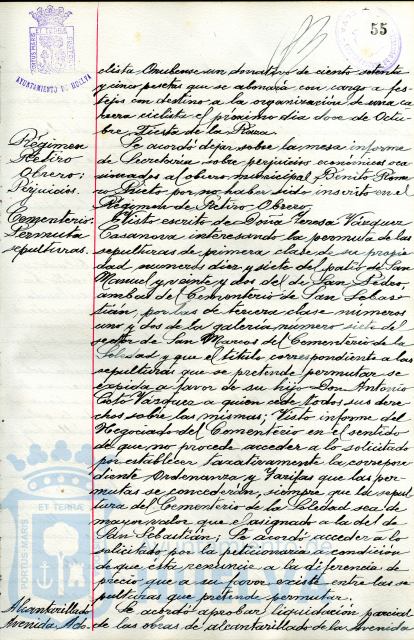 55
PORTUS MARIS
ET TERRÆ
AYUNTAMIENTO DE HUELVA
clista Onubense un donativo de ciento setenta
y cinco pesetas que se abonará con cargo a fes-
tejos con destino a la organización de una ca-
rrera ciclista el próximo día doce de Octu-
bre, Fiesta de la Raza.
Régimen
Retiro
Obrero:
Perjuicios.
Se acordó dejar sobre la mesa informe
de Secretaría sobre perjuicios económicos oca-
sionados al obrero municipal Benito Rome-
ro Prieto por no haber sido inscrito en el
Régimen de Retiro Obrero.
Cementerio:
Permuta
sepulturas.
Visto escrito de Doña Teresa Vázquez
Casanova interesando la permuta de las
sepulturas de primera clase de su propie-
dad números diez y siete del patio de San
Manuel y veinte y dos del de San Pedro,
ambas del Cementerio de San Sebas-
tián, por las de tercera clase números
uno y dos de la galería número siete del
sector de San Marcos del Cementerio de la
Soledad y que el título correspondiente a las
sepulturas que se pretende permutar se
expida a favor de su hijo Don Antonio
Coto Vázquez a quien cede todos sus dere-
chos sobre las mismas; Visto informe del
Negociado del Cementerio en el sentido
de que no procede acceder a lo solicitado
por establecer taxativamente la correspon-
diente Ordenanza y Tarifas que las per-
mutas se concederán, siempre que la sepul-
tura del Cementerio de la Soledad sea de
mayor valor que el asignado a la del de
San Sebastián; Se acordó acceder a lo
solicitado por la peticionaria a condición
de que ésta renuncie a la diferencia de
precio que a su favor existe entre las se-
pulturas que pretende permutar.
Alcantarillado
Avenida Ado.
Se acordó aprobar liquidación parcial
de las obras de alcantarillado de la Avenida
ET TERRÆ
PORTUS MARIS
Ayuntamiento de